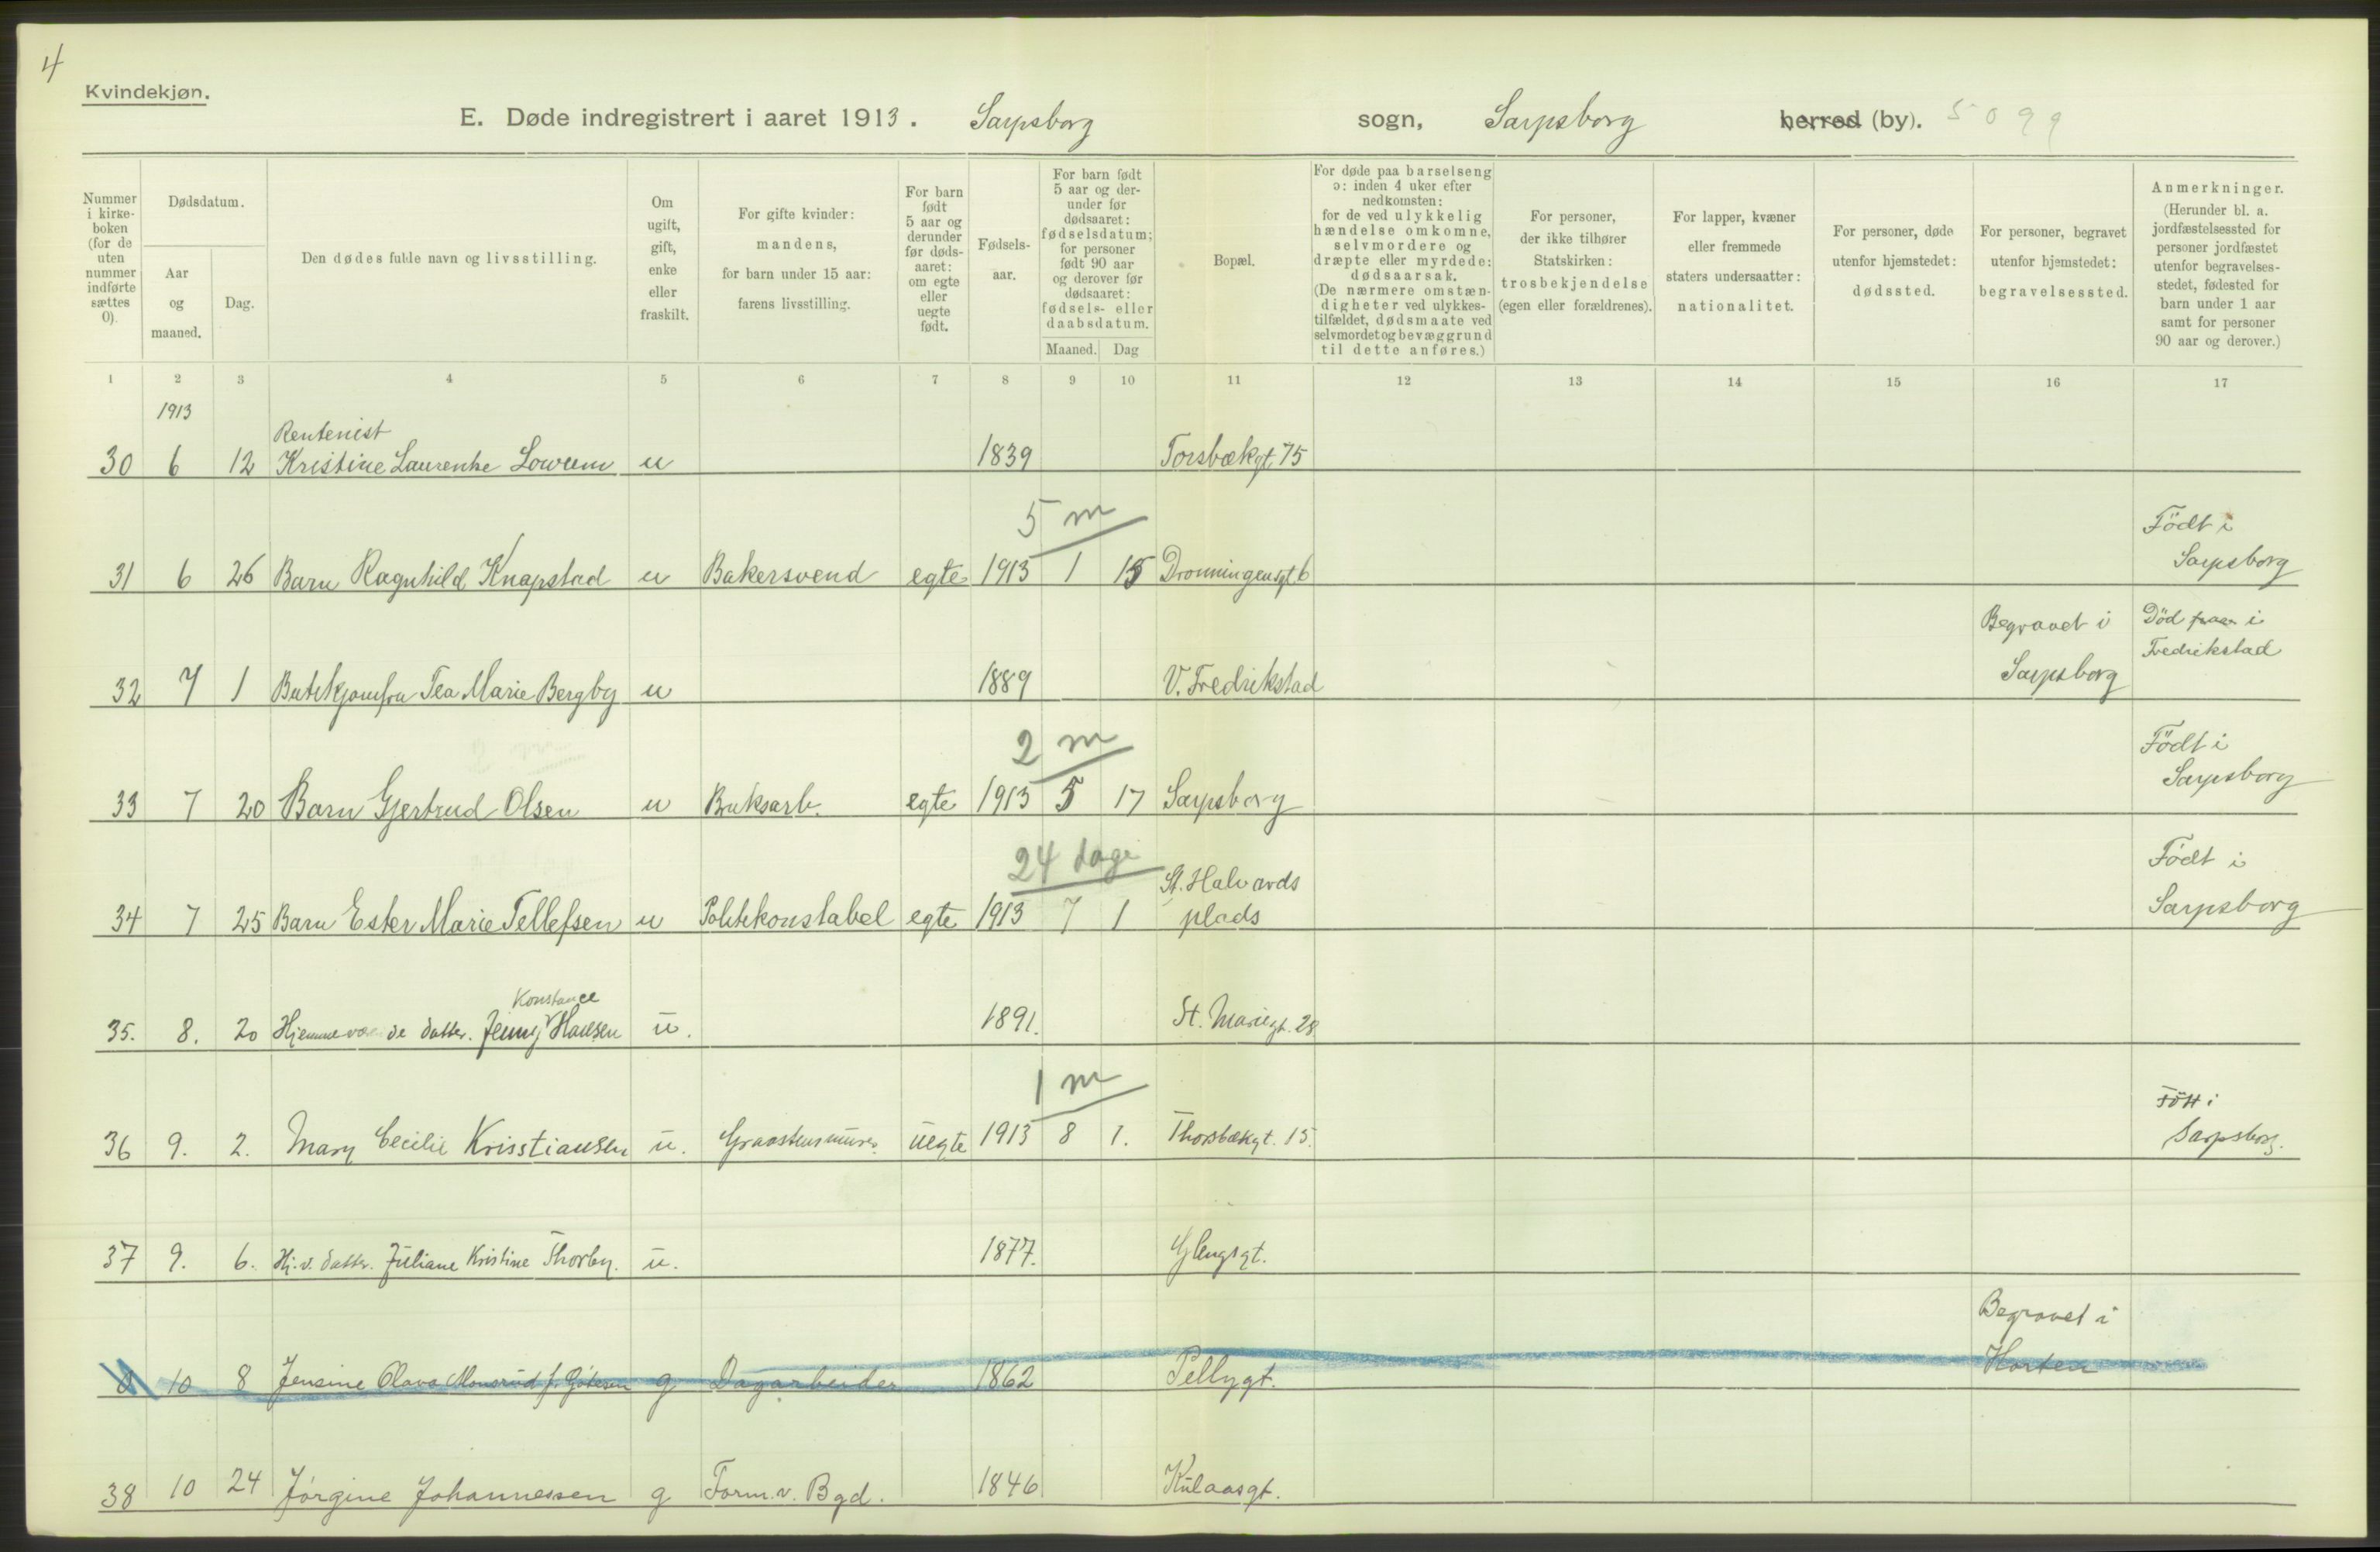 4
Kvindekjøn.
E. Døde indregistrert i aaret 1913. Sarpsborg sogn, Sarpsborg herred (by). 5099
Nummer i kirke-boken (for de uten nummer indførte sættes 0).
Dødsdatum.
Aar og maaned.
Dag.
Den dødes fulde navn og livsstilling.
Om ugift, gift, enke eller fraskilt.
For gifte kvinder: mandens, for barn under 15 aar: farens livsstilling.
For barn født 5 aar og derunder før døds-aaret: om egte eller uegte født.
Fødsels-aar.
For barn født 5 aar og der-under før dødsaaret: fødselsdatum; for personer født 90 aar og derover før dødsaaret: fødsels- eller daabsdatum.
Maaned. Dag
Bopæl.
For døde paa barselseng ɔ: inden 4 uker efter nedkomsten: for de ved ulykkelig hændelse omkomne, selvmordere og dræpte eller myrdede: dødsaarsak. (De nærmere omstæn-digheter ved ulykkes-tilfældet, dødsmaate ved selvmordet og bevæggrund til dette anføres.)
For personer, der ikke tilhører Statskirken: trosbekjendelse (egen eller forældrenes).
For lapper, kvæner eller fremmede staters undersaatter: nationalitet.
For personer, døde utenfor hjemstedet: dødssted.
For personer, begravet utenfor hjemstedet: begravelsessted.
Anmerkninger. (Herunder bl. a. jordfæstelsessted for personer jordfæstet utenfor begravelses-stedet, fødested for barn under 1 aar samt for personer 90 aar og derover.)
1 2 3 4 5 6 7 8 9 10 11 12 13 14 15 16 17
1913
Rentenist
30 6 12 Kristine Laurentse Lowum u 1839 Torsbækgt. 75
5 m
Födt i
31 6 26 Barn Ragnhild Knapstad u Bakersvend egte 1913 1 15 Dronningensgt. 6 Sarpsborg
Begravet i Död i
Fredrikstad
32 7 1 Butikjomfru Tea Marie Bergby u 1889 V. Fredrikstad Sarpsborg
2 m
Födt i
33 7 20 Barn Gjertrud Olsen u Bruksarb. egte 1913 5 17 Sarpsborg Sarpsborg
24 dage
Födt i
St. Halvards
34 7 25 Barn Ester Marie Tellefsen u Politikonstabel egte 1913 7 1 plads Sarpsborg
Konstance
35. 8. 20 Hjemmeværende datter. Jenny Hansen u. 1891. St. Mariegt. 28.
1 m
Födt i
36 9. 2. Mary Cecilie Krisstiansen u. Graastensmurer. uegte 1913 8 1. Thorsbækgt. 15. Sarpsborg.
37 9. 6. Hj. v. datter. Juliane Kristine Thorby. u. 1877. Glengsgt.
Begravet i
0 10 8 Jensine Olava Monsrud f. g Dagarbeider 1862 Pellygt. Horten
38 10 24 Jørgine Johannessen g Form. v. Bgd. 1846 Kulaasgt.